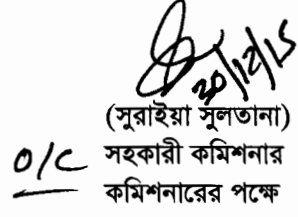 ২০/১২/১৫
(সুরাইয়া সুলতানা)
O/C সহকারী কমিশনার
কমিশনারের পক্ষে